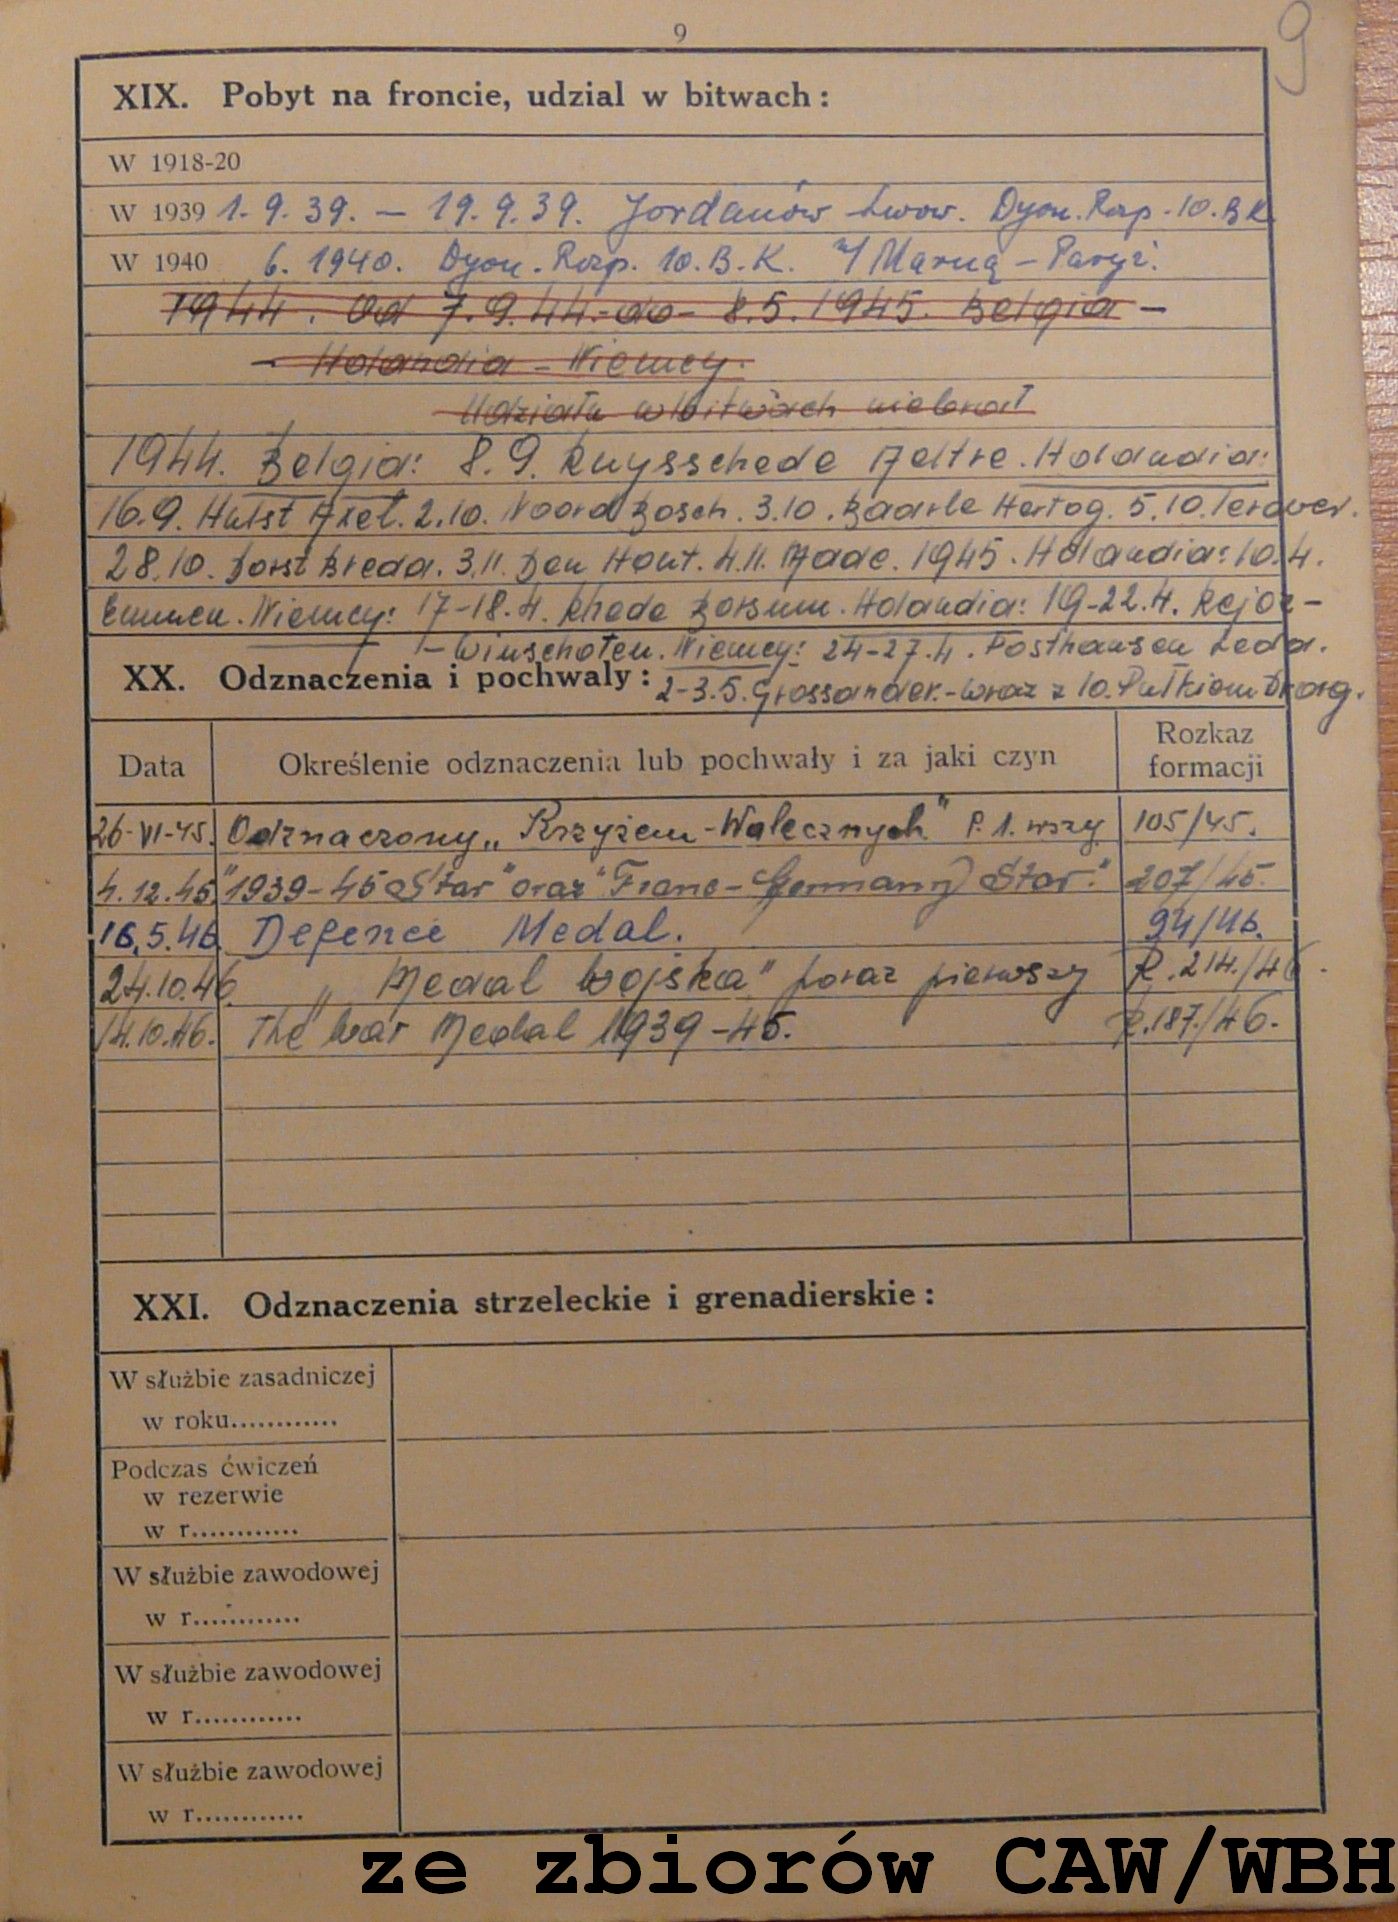 9
9
XIX. Pobyt na froncie, udział w bitwach:
W 1918-20
W 1939 1.9.39. – 19.9.39. Jordanów Lwow. Dyon. Rozp. 10. B.K.
W 1940 6.1940. Dyon. Rozp. 10.B.K. n/Marną – Paryż.
1944. Od 7.9.44.-do- 8.5.1945. Belgia –
– Holandia – Niemcy.
Udziału w bitwach nie brał
1944. Belgia: 8.9. Ruysschede Aeltre. Holandia:
16.9. Hulst Axel. 2.10. Noord Bosch. 3.10. Baarle Hertog. 5.10. Terover.
28.10. Dorst Breda. 3.11. Den Hout. 4.11. Made. 1945. Holandia: 10.4.
Emmen. Niemcy: 17-18.4. Rhede Borsum. Holandia: 19-22.4.
– Winschoten. Niemcy: 24-27.4. Posthausen Leda.
XX. Odznaczenia i pochwały: 2-3.5. Grossander.-wraz z 10. Pułkiem Drag.
Data Określenie odznaczenia lub pochwały i za jaki czyn Rozkaz formacji
26-VI-45. Odznaczony „Krzyżem-Walecznych" P. 1. wszy 105/45.
4.12.45. "1939-45 Star" oraz "Franc-Germany Star." 207/45.
16.5.46. Defence Medal. 94/46.
24.10.46. „Medal Wojska" poraz pierwszy R. 214./46.
14.10.46. The War Medal 1939-45. R.187./46.
XXI. Odznaczenia strzeleckie i grenadierskie:
W służbie zasadniczej
w roku............
Podczas ćwiczeń
w rezerwie
w r............
W służbie zawodowej
w r............
W służbie zawodowej
w r............
W służbie zawodowej
w r............
ze zbiorów CAW/WBH